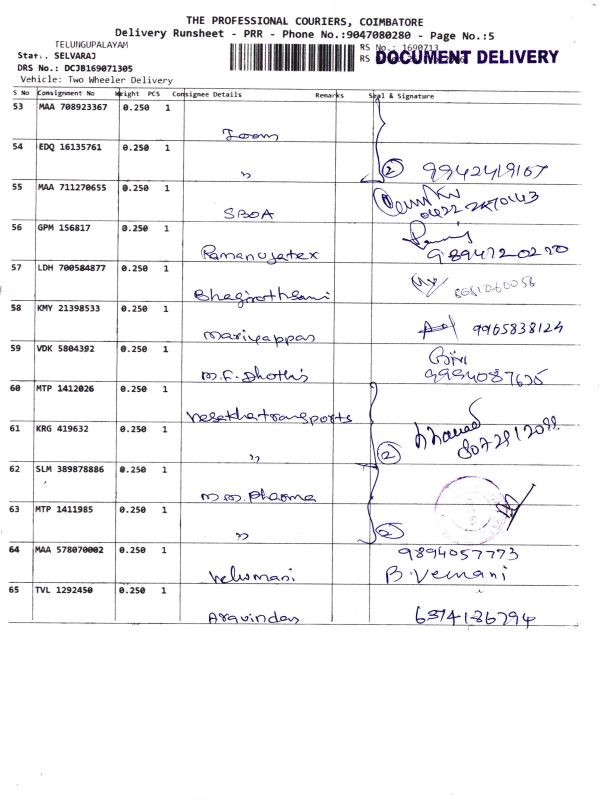 THE PROFESSIONAL COURIERS, COIMBATORE
Delivery Runsheet - PRR - Phone No.:9047080280 - Page No.:5
TELUNGUPALAYAM
RS No.: 1690713
Stat.. SELVARAJ
RS
DOCUMENT DELIVERY
DRS No.: DCJB169071305
Vehicle: Two Wheeler Delivery
S No Consignment No Weight PCS Consignee Details Remarks Seal & Signature
53 MAA 708923367 0.250 1
Zoom
54 EDQ 16135761 0.250 1
" 2 9942419167
55 MAA 711270655 0.250 1
SBOA 0422 2470443
56 GPM 156817 0.250 1
Ramanujatex 9894720220
57 LDH 700584877 0.250 1
58 KMY 21398533 0.250 1
Mariyappan 9965838124
59 VDK 5804392 0.250 1
M.F. Dhothis 9994087635
60 MTP 1412026 0.250 1
61 KRG 419632 0.250 1
" 2
62 SLM 389878886 0.250 1
M.M. Pharma
63 MTP 1411985 0.250 1
" 2
64 MAA 578070002 0.250 1 9894057773
Velumani
65 TVL 1292450 0.250 1
Aravindan 6374136794